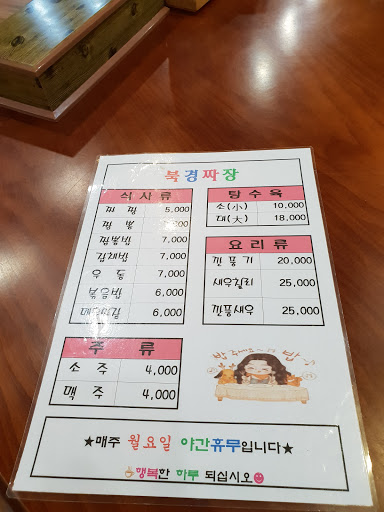 북경짜장
식사류
짜 장 5,000
짬 뽕
짬뽕밥 7,000
잡채밥 7,000
우 동 7,000
볶음밥 6,000
6,000
주 류
소 주 4,000
맥 주 4,000
탕수육
소(小) 10,000
대(大) 18,000
요리류
깐풍기 20,000
새우칠리 25,000
깐풍새우 25,000
밥 주세요~♪ 밥♪
★매주 월요일 야간휴무입니다★
행복한 하루 되십시오